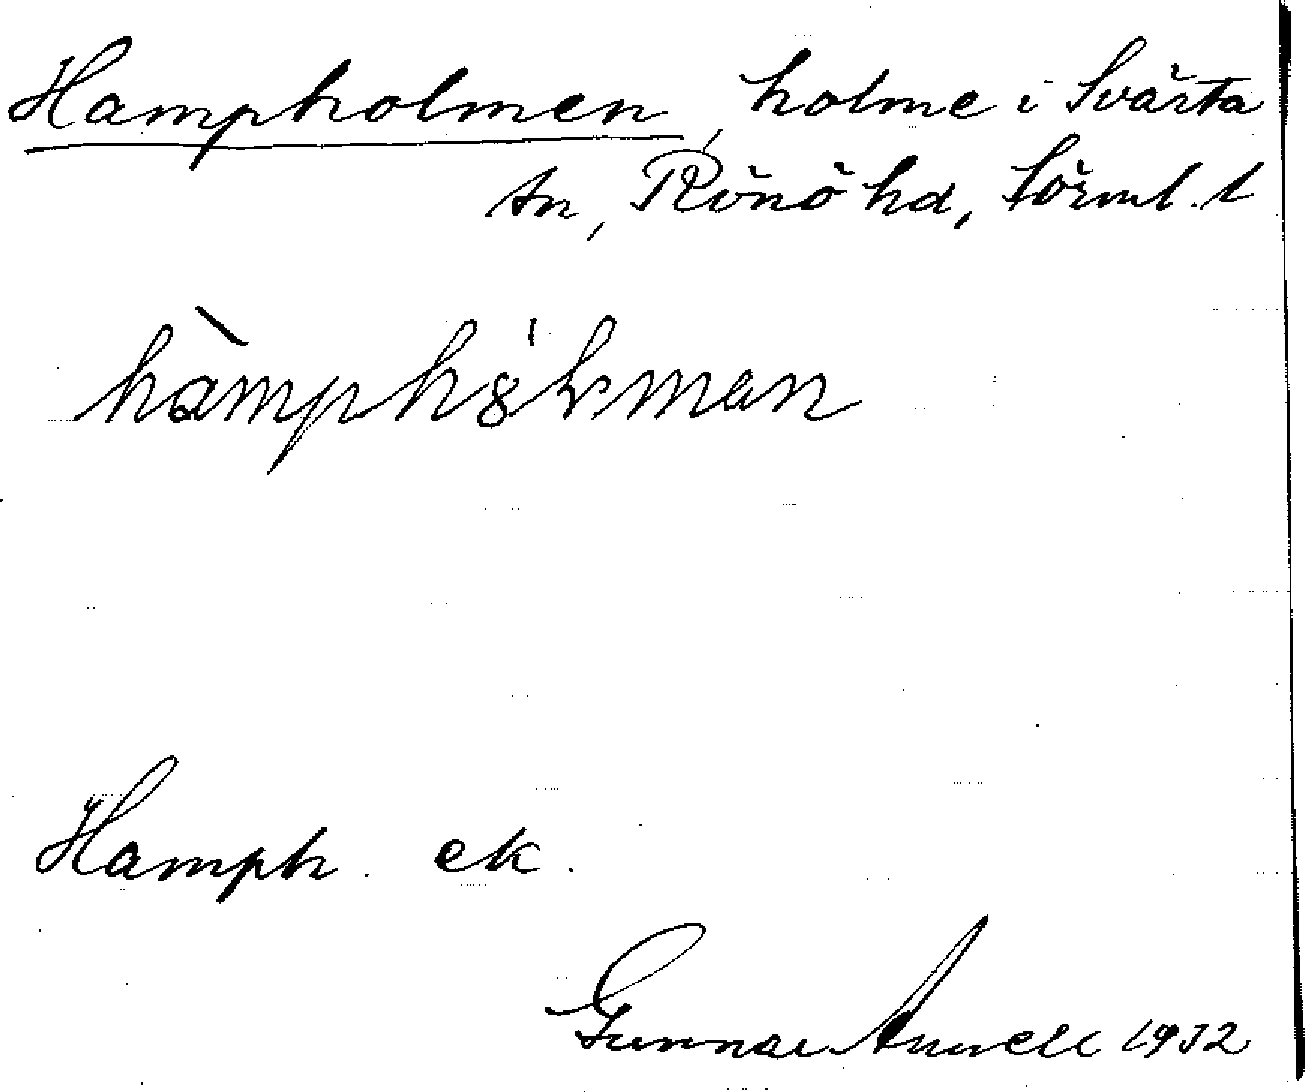 Hampholmen, holme i Svärta
sn, Rönö hd, Sörml. l
hàmphȯlman
Hamph. ek.
Gunnar 1932